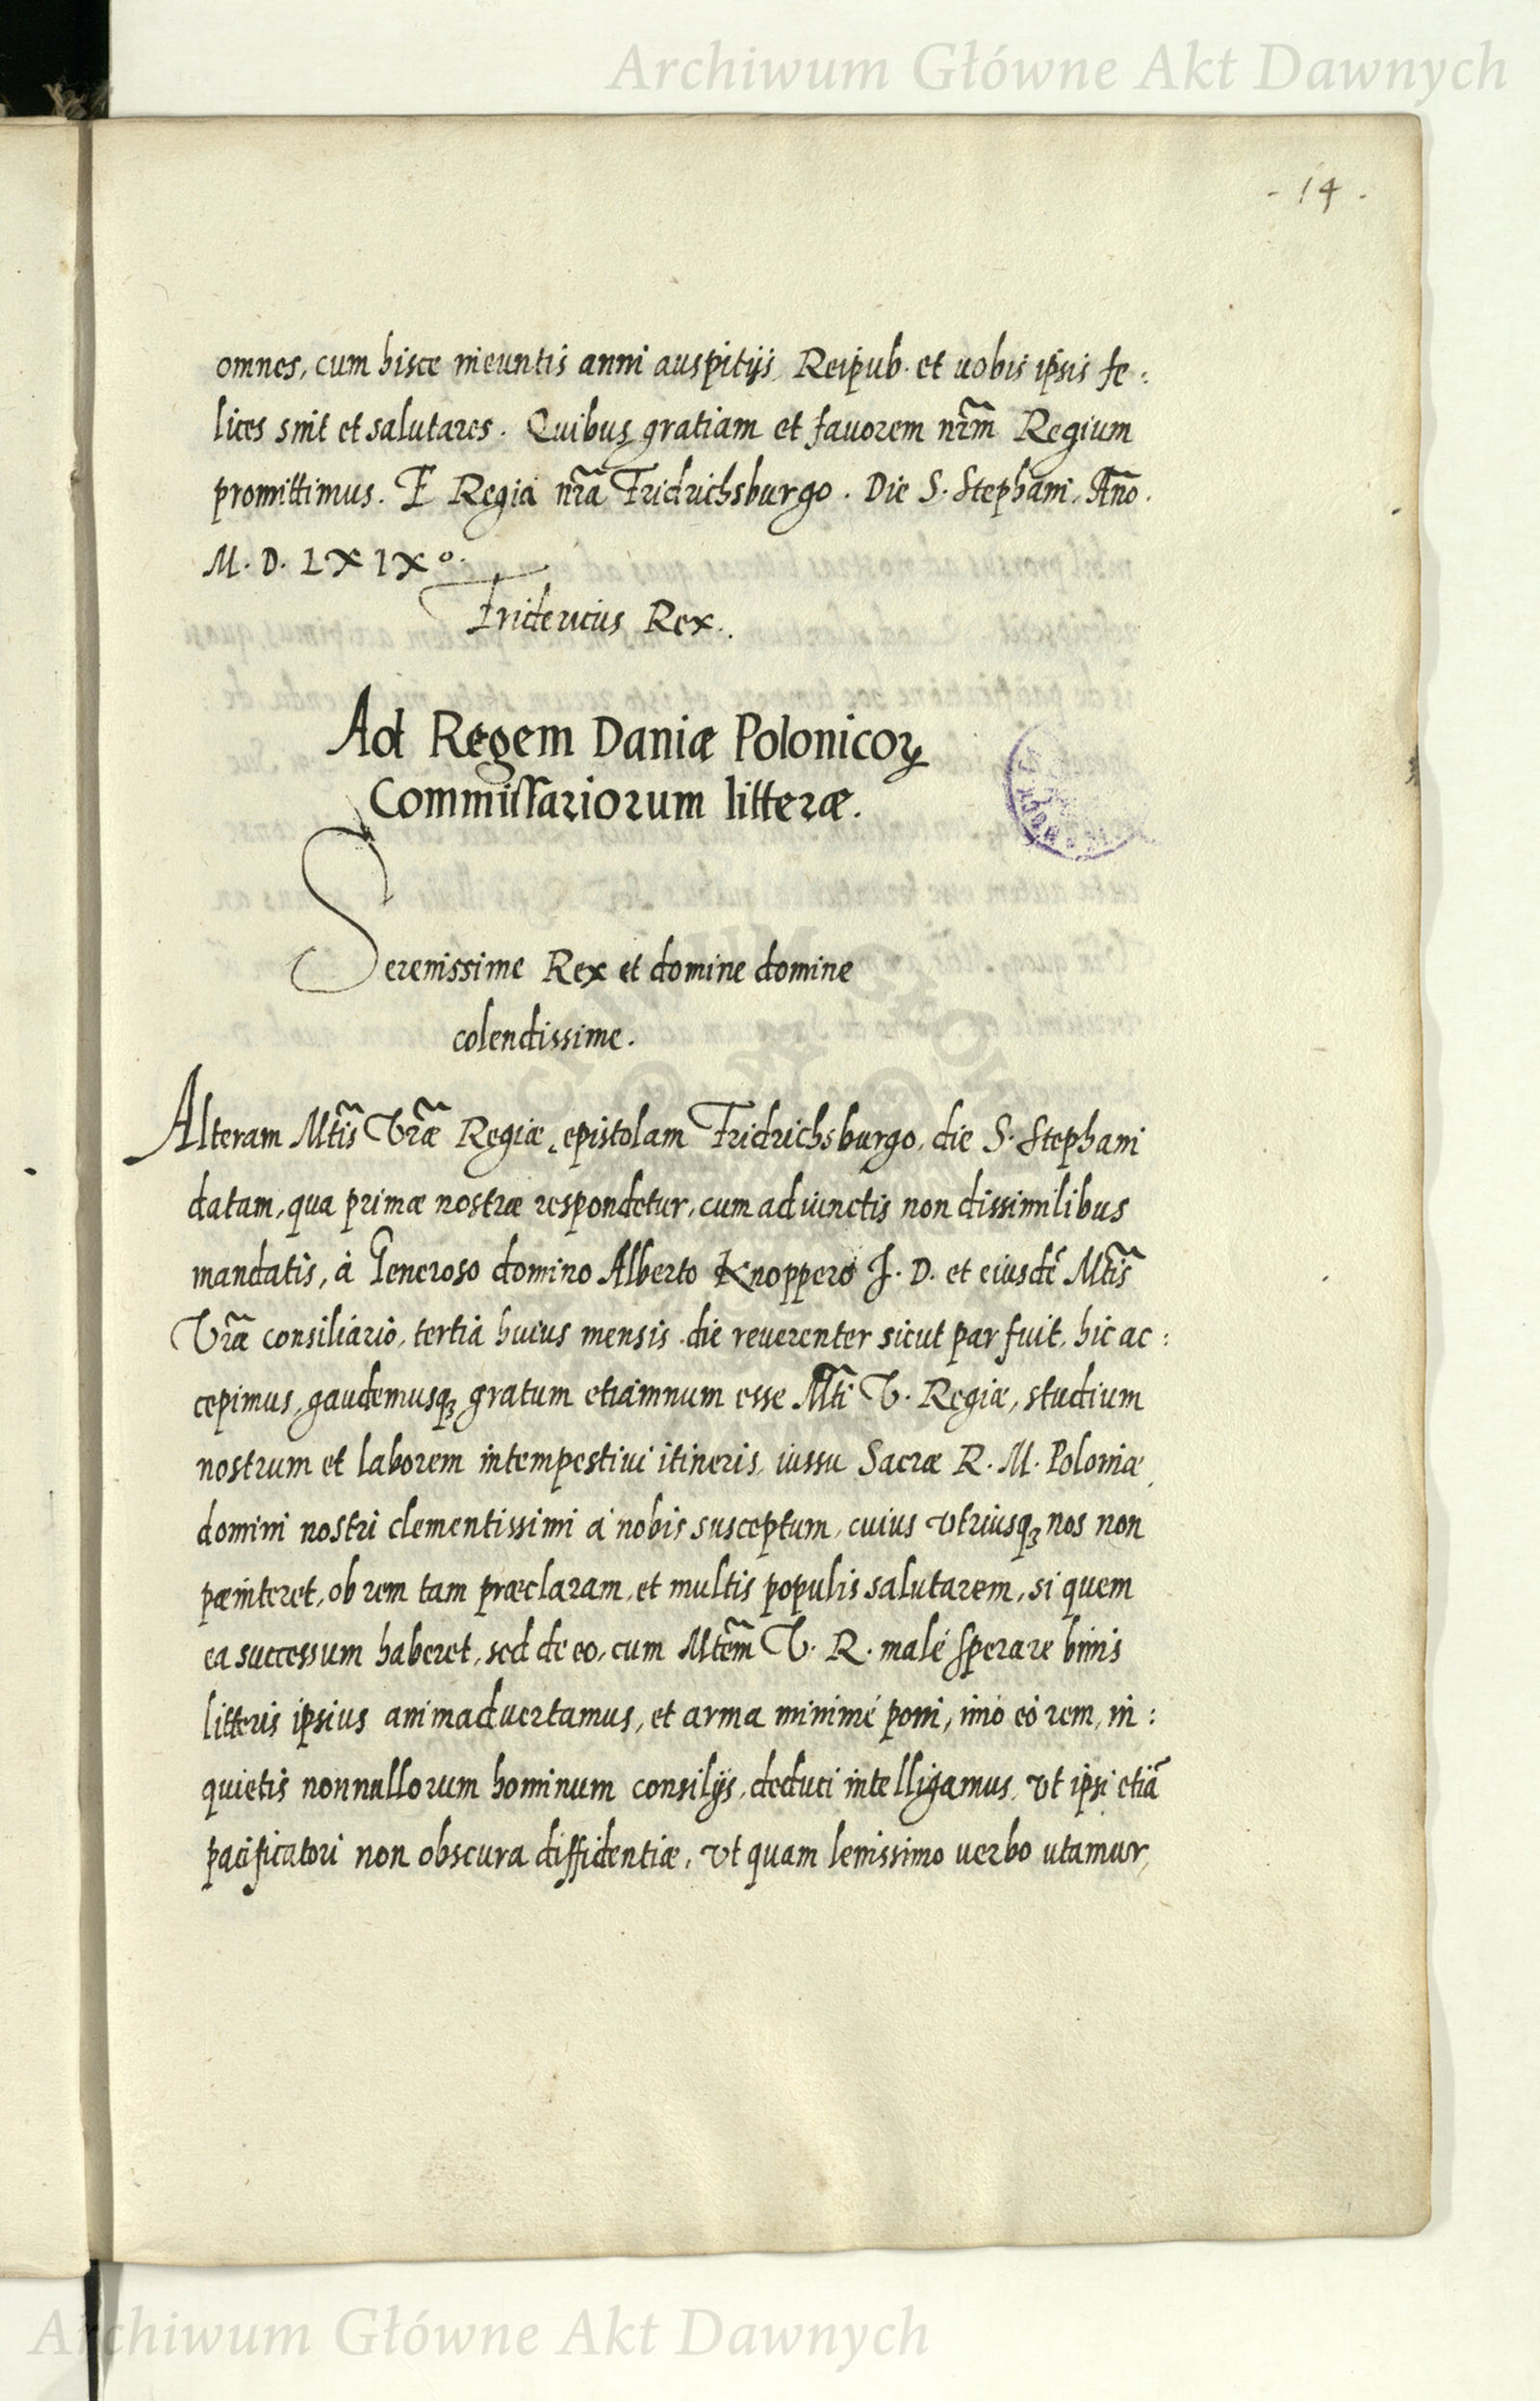 Archiwum Główne Akt Dawnych
- 14 .
omnes, cum hisce ineuntis anni auspitijs, Reipub. et uobis ipsis fe:
lices sint et salutares. Quibus gratiam et fauorem nr̃m Regium
promittimus. E Regia nr̃a Fridrichsburgo. Die S. Stephani, Año.
M. D. LXIX°.
Fridericus Rex.
Ad Regem Daniæ Polonicoꝝ
Commissariorum litteræ.
Serenissime Rex et domine domine
colendissime.
Alteram Mtĩs Vr̃æ Regiæ epistolam Fridrichsburgo, die S. Stephani
datam, qua primæ nostræ respondetur, cum adiunctis non dissimilibus
mandatis, à Generoso domino Alberto Knoppero J. D. et eiusdẽ Mtĩs
Vr̃æ consiliario, tertia huius mensis die reuerenter sicut par fuit, hic ac:
cepimus, gaudemusqꝫ gratum etiamnum esse Mtĩ V. Regiæ, studium
nostrum et laborem intempestiui itineris, iussu Sacræ R. M. Poloniæ
domini nostri clementissimi à nobis susceptum, cuius vtriusqꝫ nos non
pæniteret, ob rem tam præclaram, et multis populis salutarem, si quem
ea successum haberet, sed de eo, cum Mtẽm V. R. malè sperare binis
litteris ipsius animaduertamus, et arma minimè poni, imò eò rem, in:
quietis nonnullorum hominum consilijs, deduci intelligamus, vt ipsi etiã
pacificatori non obscura diffidentiæ, vt quam lenissimo uerbo utamur,
Archiwum Główne Akt Dawnych